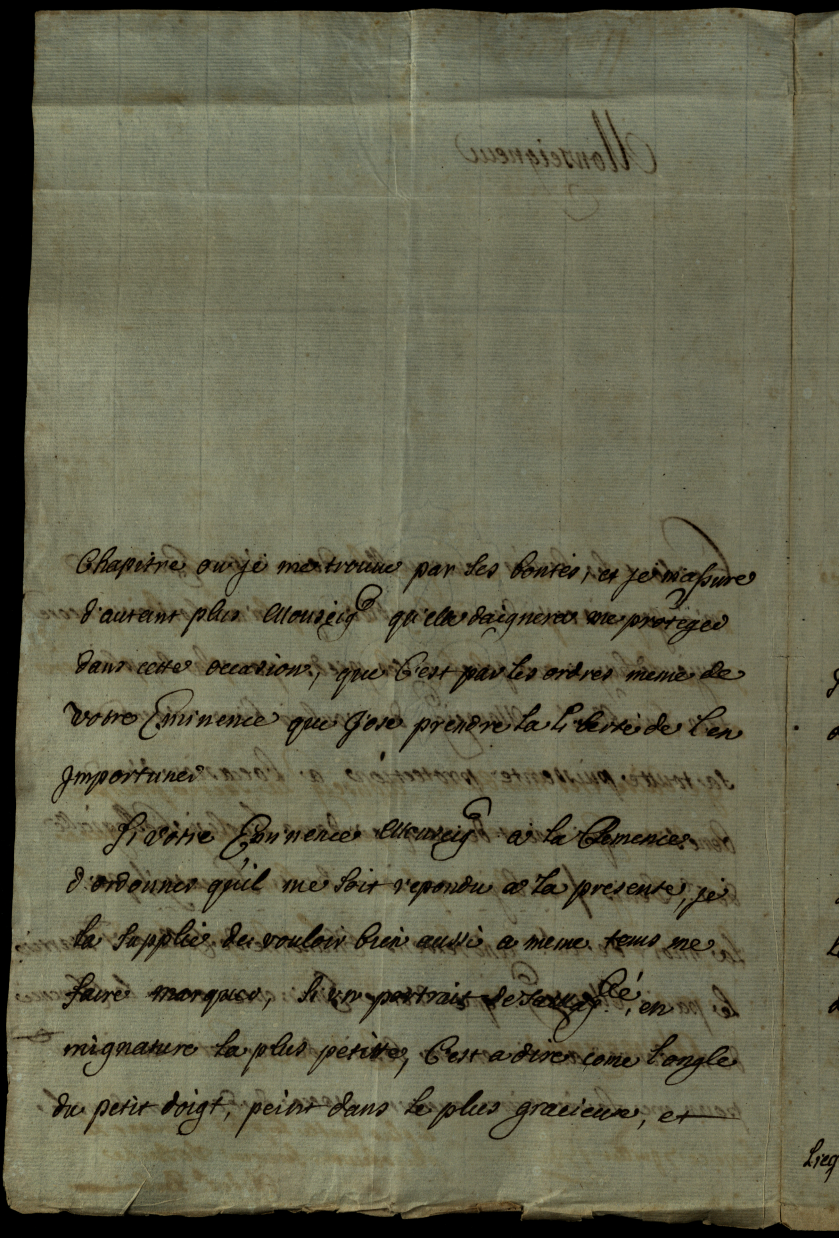 Monseigneur
Chapitre ou je me trouve par ses bontés, et je m'assure
d'autant plus Monseigr qu'elle daignera me proteger
dans cette occasion, que c'est par les ordres meme de
votre Eminence que j'ose prendre la liberté de l'en
importuner
Si votre Eminence Monseigr a la Clemence
d'ordonner qu'il me soit repondu a la presente, je
la supplie de vouloir bien aussi a meme tems me
faire marquer, si un portrait de en
mignature la plus petitte, c'est a dire come l'ongle
du petit doigt, peint dans le plus gracieux, et